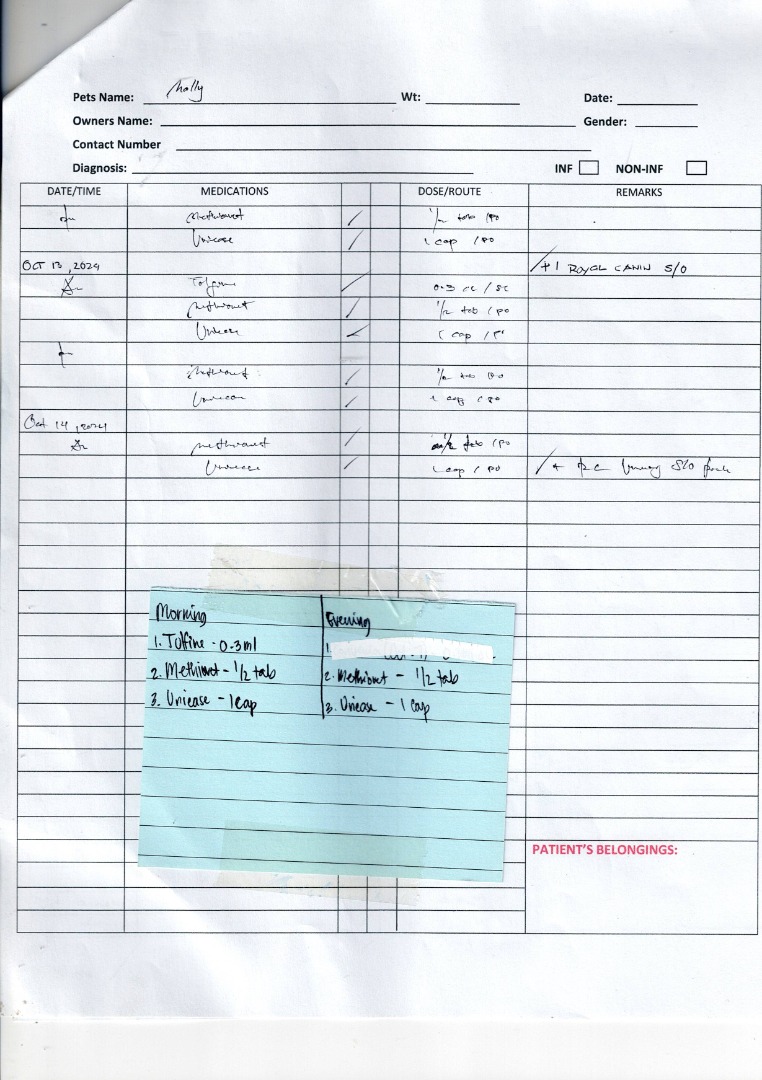 Pets Name: Molly Wt: Date:
Owners Name: Gender:
Contact Number
Diagnosis: INF NON-INF
DATE/TIME MEDICATIONS DOSE/ROUTE REMARKS
pm Methiovet / 1/2 tab / po
Unicase / 1 cap / po
Oct 13, 2024 /+1 ROYAL CANIN S/O
Am Tolfine / 0.3 cc / sc
Methiovet / 1/2 tab / po
Unicase / 1 cap / po
pm
Methiovet / 1/2 tab po
Unicase / 1 cap / po
Oct 14, 2024
Am methiovet / 1/2 tab / po
Unicase / 1 cap / po /+ S/O
Morning
1. Tolfine - 0.3 ml
2. Methiovet - 1/2 tab
3. Unicase - 1 cap
Evening
1.
2. Methiovet - 1/2 tab
3. Unicase - 1 cap
PATIENT'S BELONGINGS: